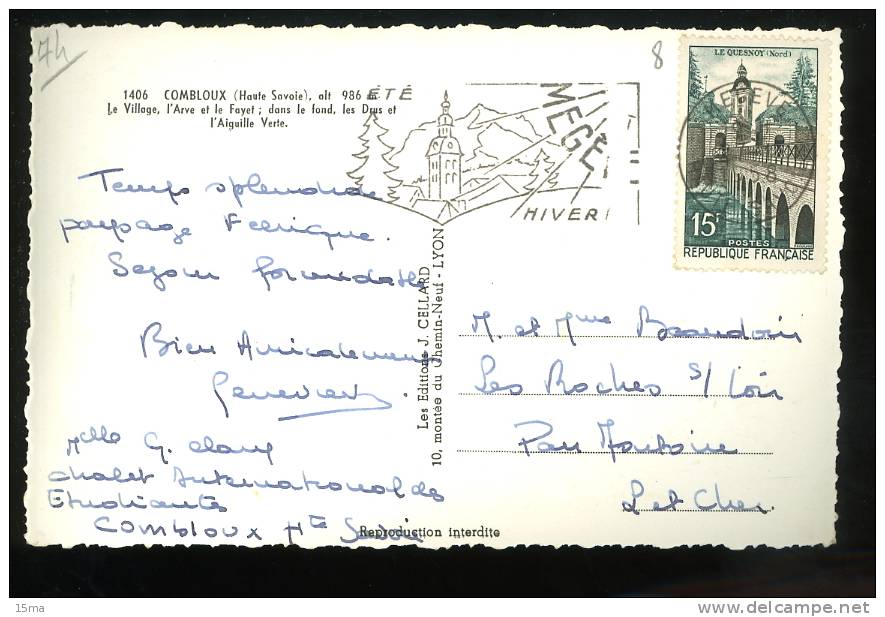 74
8
1406 COMBLOUX (Haute Savoie), alt 986 m
Le Village, l'Arve et le Fayet ; dans le fond, les Drus et
l'Aiguille Verte.
ÉTÉ
MEGÈ
HIVER
LE QUESNOY (Nord)
15F
POSTES
RÉPUBLIQUE FRANÇAISE
Temps splendide
paysage Féerique.
Séjour formidable
Bien Amicalement
Geneviève
Mlle G.
Chalet International des
Etudiants
COMBLOUX Hte Savoie
Les Editions J. CELLARD
10, montée du Chemin-Neuf - LYON
Reproduction interdite
M. et Mme Beaudoin
Les Roches s/ Loir
Par Montoire
L et Cher
15ma
delcampe.net